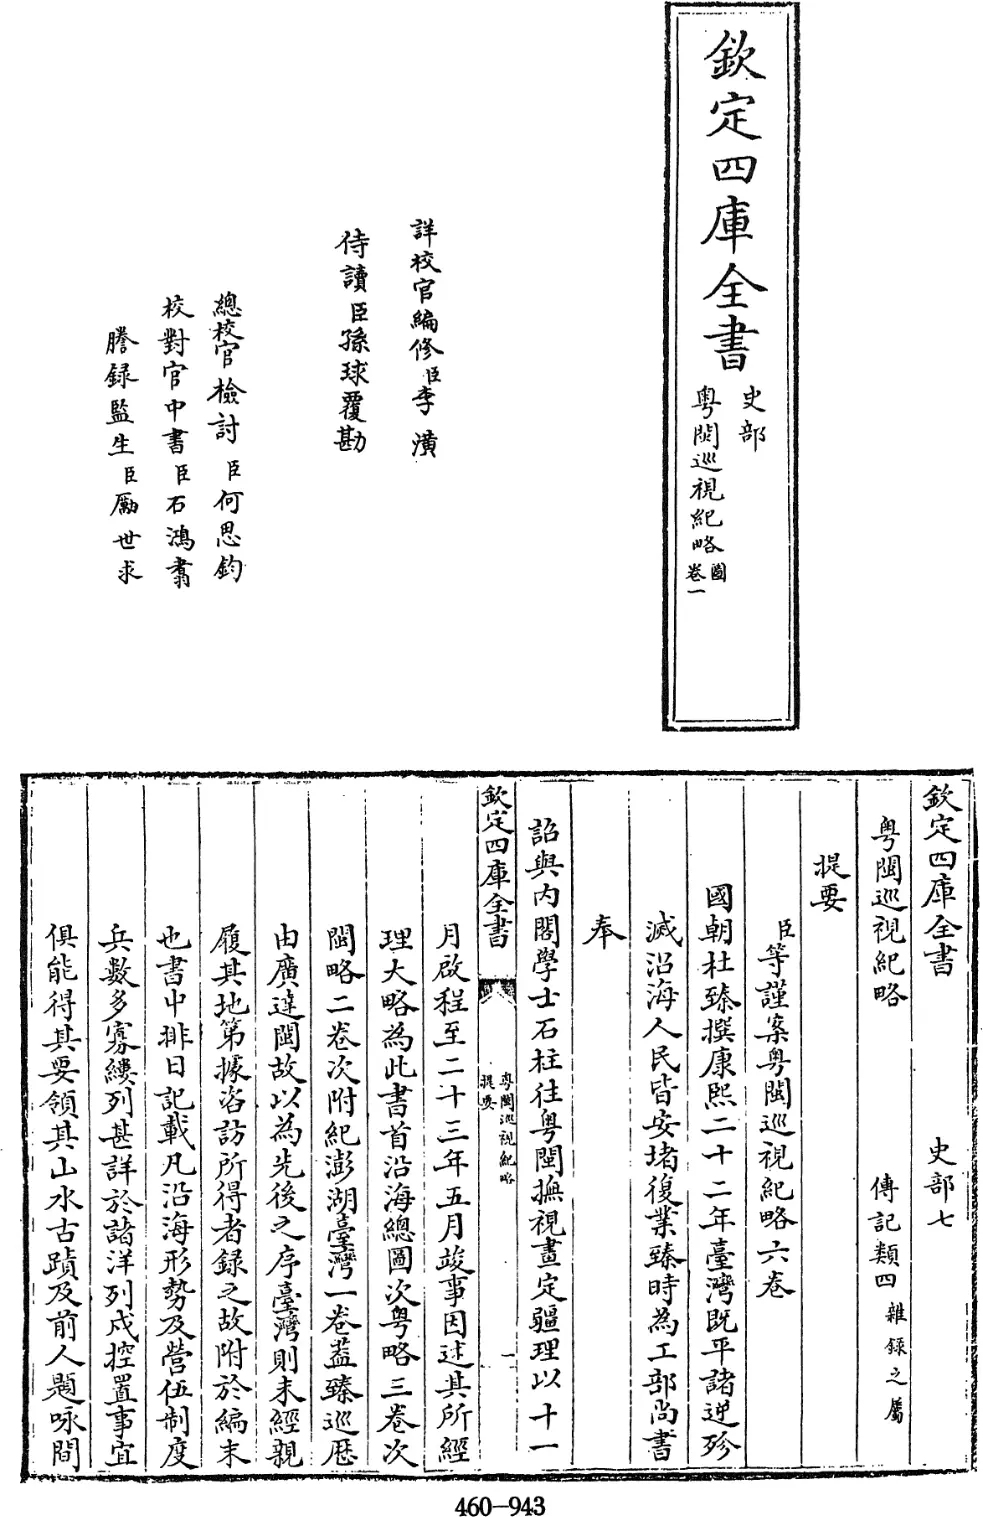 欽定四庫全書
史部
粵閩巡視紀略圖卷一
詳校官編修臣李潢
侍讀臣孫球覆勘
總校官檢討臣何思鈞
校對官中書臣石鴻翥
謄録監生臣勵世求
欽定四庫全書 史部七
粵閩巡視紀略 傳記類四雜録之屬
提要
臣等謹案粵閩巡視紀略六卷
國朝杜臻撰康熙二十二年臺灣既平諸逆殄
滅沿海人民皆安堵復業臻時為工部尚書
奉
詔與内閣學士石柱往粵閩撫視畫定疆理以十一
欽定四庫全書 粵閩巡視紀略 提要 一
月啟程至二十三年五月竣事因述其所經
理大略為此書首沿海總圖次粵略三卷次
閩略二卷次附紀澎湖臺灣一卷蓋臻巡歷
由廣達閩故以為先後之序臺灣則未經親
履其地第據咨訪所得者録之故附於編末
也書中排日記載凡沿海形勢及營伍制度
兵數多寡縷列甚詳於諸洋列戍控置事宜
俱能得其要領其山水古蹟及前人題咏間
460-943